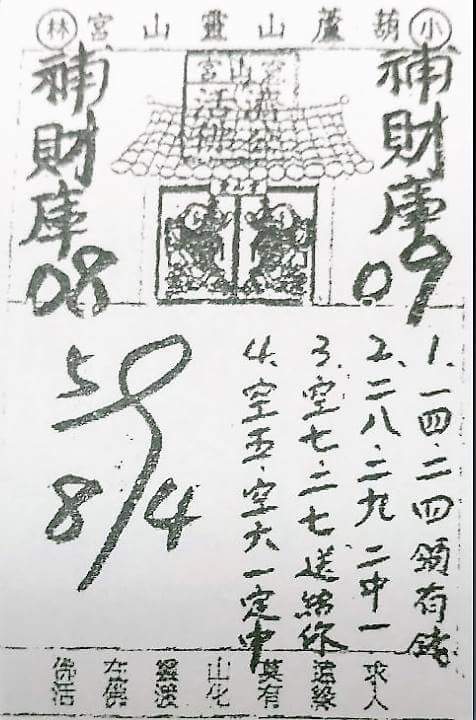 小葫蘆山靈山宮林
濟公
活佛
補財庫
09
補財庫
08
1.一四.二四頒有錢
2.二八.二九 二中一
3.空七.二七送給你
4.空五.空六一定中
5 9
8 4
佛在靈山莫遠求
活佛渡化有緣人